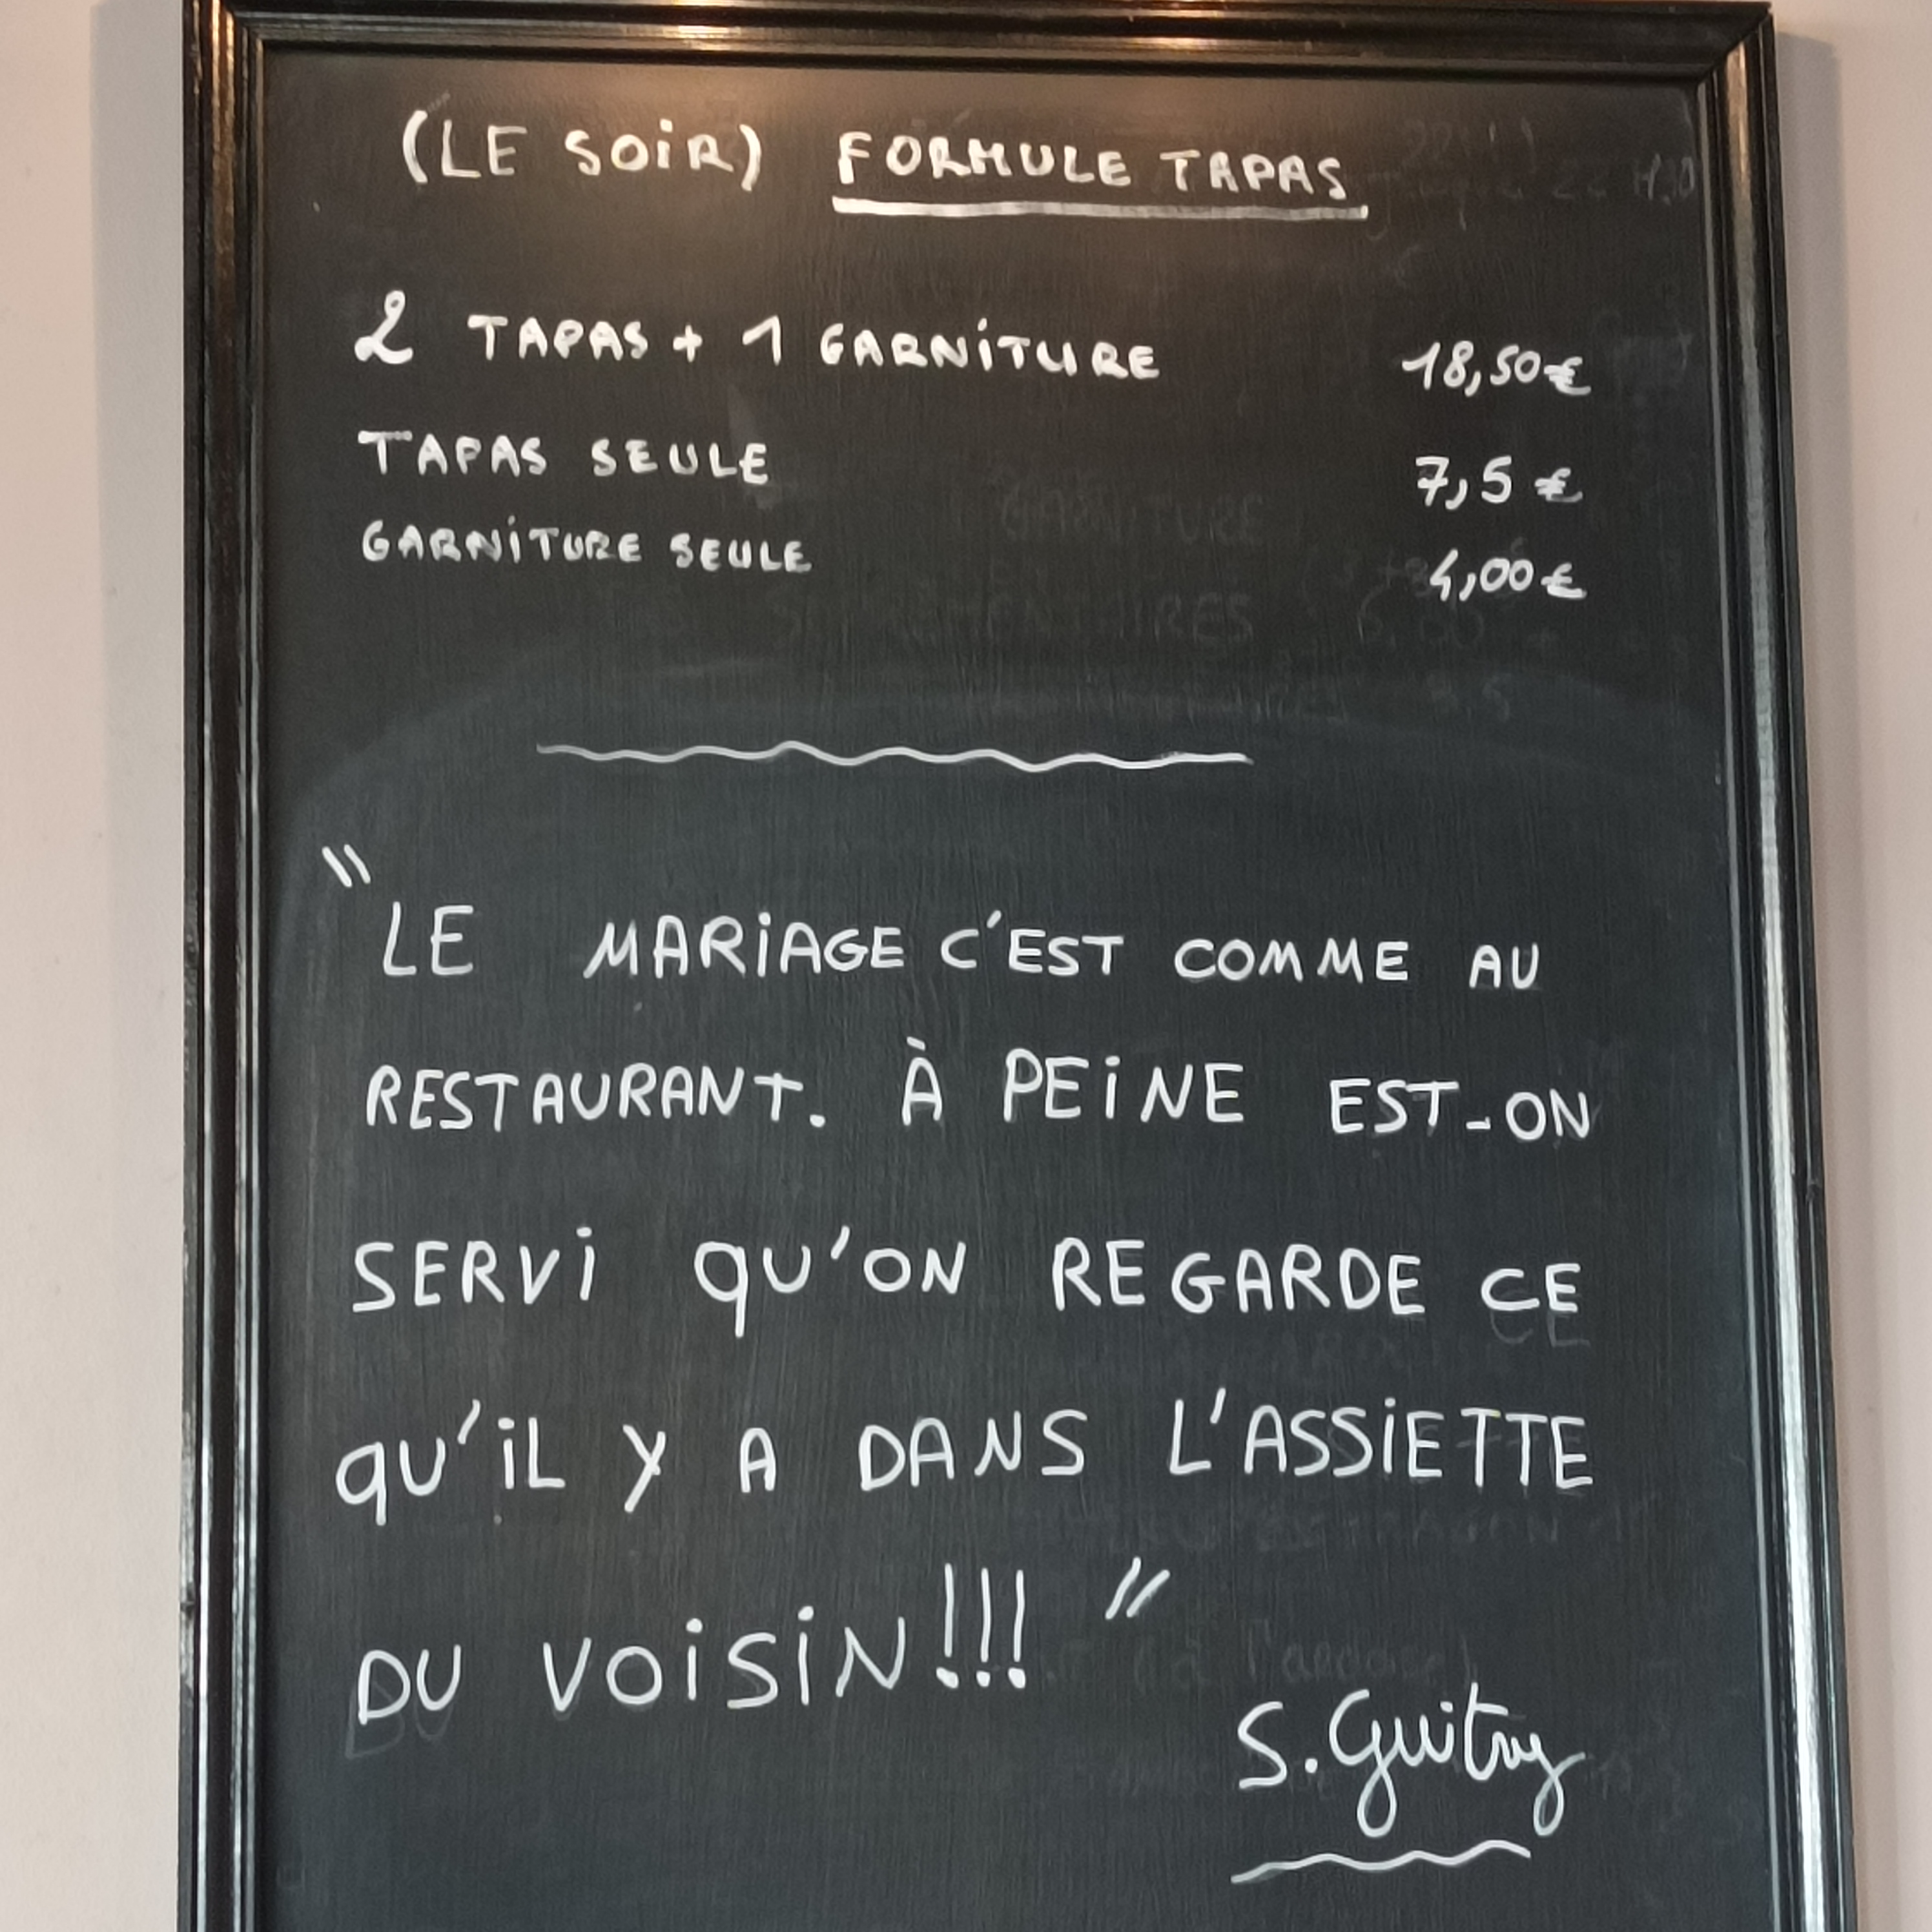 (LE SOIR) FORMULE TAPAS
2 TAPAS + 1 GARNITURE 18,50€
TAPAS SEULE 7,5 €
GARNITURE SEULE 4,00€
"LE MARIAGE C'EST COMME AU
RESTAURANT. À PEINE EST-ON
SERVI QU'ON REGARDE CE
QU'IL Y A DANS L'ASSIETTE
DU VOISIN!!! "
S. Guitry